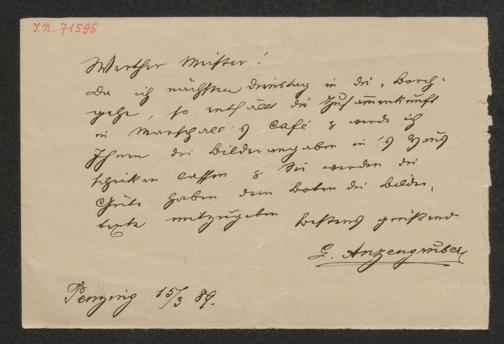 I.N. 71595
Werther Meister!
Da ich nächsten Dienstag in die "Vorch-
gehe, so entfällt die Zusammenkunft
in Marschall's Café & werde ich
Ihnen die Bilderangaben in's Haus
schicken lassen & Sie werden die
Güte haben dem Boten die Bilder,
texte mitzugeben bestens grüßend
L. Anzengruber
Penzing 15/3 89.